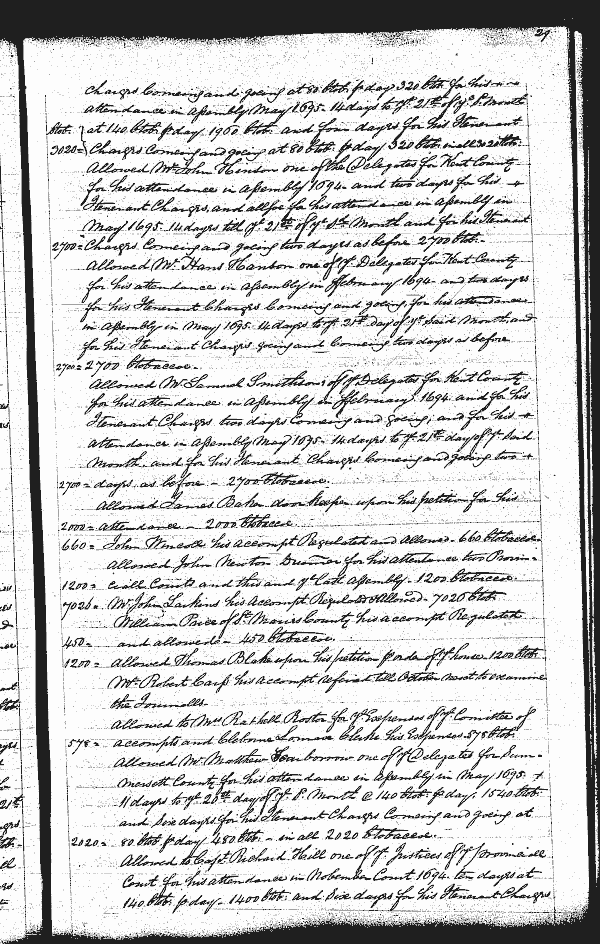 29
Charges Comeing and going at 80 lbtob. p day 320 lbtob. for his
attendance in Assembly May 1695. 14 days to ye. 21th of ye. sd. Month
lbtob. at 140 lbtob. p day. 1960 lbtob. and four dayes for his Itenerant
3020= Charges Comeing and going at 80 lbtob. p day 320 lbtob. in all 3020 lbtob.
Allowed Mr. John Hinson one of the Delegates for Kent County
for his attendance in Assembly 1694. and two dayes for his
Itenerant Charges, and allsoe for his attendance in Assembly in
May 1695. 14 dayes till ye. 21th of ye. sd. Month and for his Itenerant
2700= Charges Comeing and going two dayes as before 2700 lbtob.
Allowed Mr. Hans Hanson one of ye. Delegates for Kent County
for his attendance in Assembly in ffebruary 1694. and two dayes
for his Itenerant Charges Comeing and going, for his attendance
in Assembly in May 1695. 14 dayes to ye. 21th day of ye. said Month, and
for his Itenerant Charges going and Comeing two dayes as before
2700= 2700 lbtobaccoe.
Allowed Mr. Samuel Smithson of ye. Delegates for Kent County
for his attendance in Assembly in ffebruary. 1694. and for his
Itenerant Charges two dayes Comeing and going; and for his
attendance in Assembly May 1695. 14 dayes to ye. 21th day of ye. said
Month, and for his Itenerant Charges Comeing and going two
2700= dayes as before - 2700 lbtobaccoe.
Allowed James Baker door keeper upon his petition for his
2000= attendance - 2000 lbtobaccoe
660= John Wincott his accompt Regulated and Allowed - 660 lbtobaccoe
Allowed John Newton Drummer for his attendance two Provin-
1200= ciall Courts and this and ye. last Assembly - 1200 lbtobaccoe.
7026= Mr. John Larkins his accompt Regulated & Allowed - 7026 lbtob.
William Price of St. Maries County his accompt Regulated
450= and allowed - 450 lbtobaccoe.
1200= Allowed Thomas Blake upon his petition p order of ye. house 1200 lbtob.
Mr. Robert Carss his accompt referred till October next to examine
the Journalls.
Allowed to Mrs. Rachell Rooter for ye. Expenses of ye. Comittee of
578= accompts and Cleborne Lomax Clerke his Expenses 578 lbtob.
Allowed Mr. Matthew one of ye. Delegates for Sum-
mersett County for his attendance in Assembly in May 1695.
11 dayes to ye. 21th day of ye. sd. Month @ 140 lbtob. p day. 1540 lbtob.
and six dayes for his Itenerant Charges Comeing and going at
2020= 80 lbtob. p day 480 lbtob. - in all 2020 lbtobaccoe.
Allowed to Capt. Richard Hill one of ye. Justices of ye. provinciall
Court for his attendance in November Court 1694. ten dayes at
140 lbtob. p day - 1400 lbtob. and six dayes for his Itenerant Charges